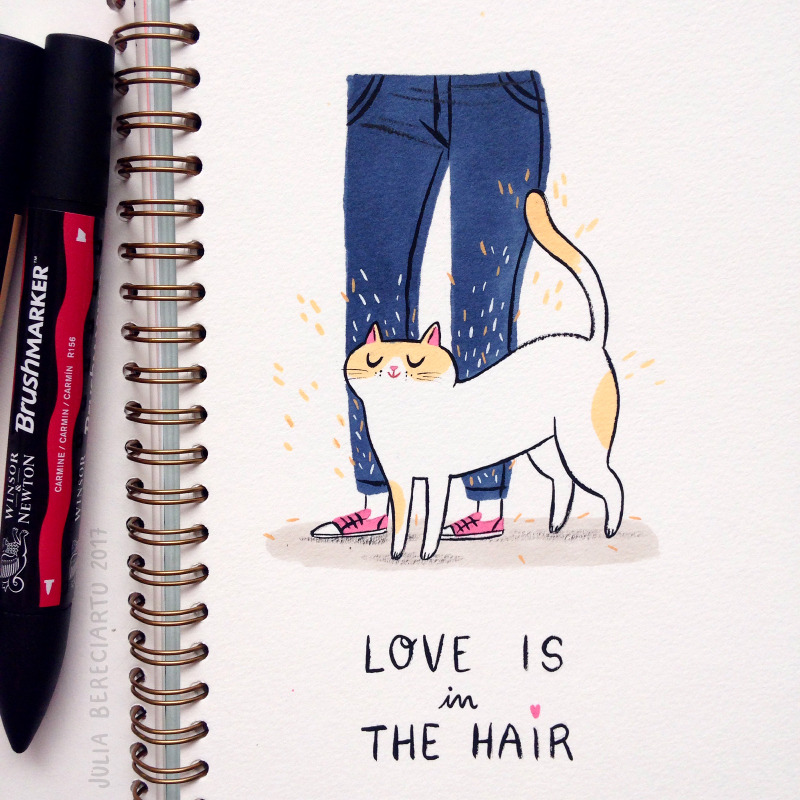 LOVE IS
in
THE HAiR
BrushMARKER™
CARMINE / CARMIN / CARMÍN R156
WINSOR
&
NEWTON
JULIA BERECIARTU 2017